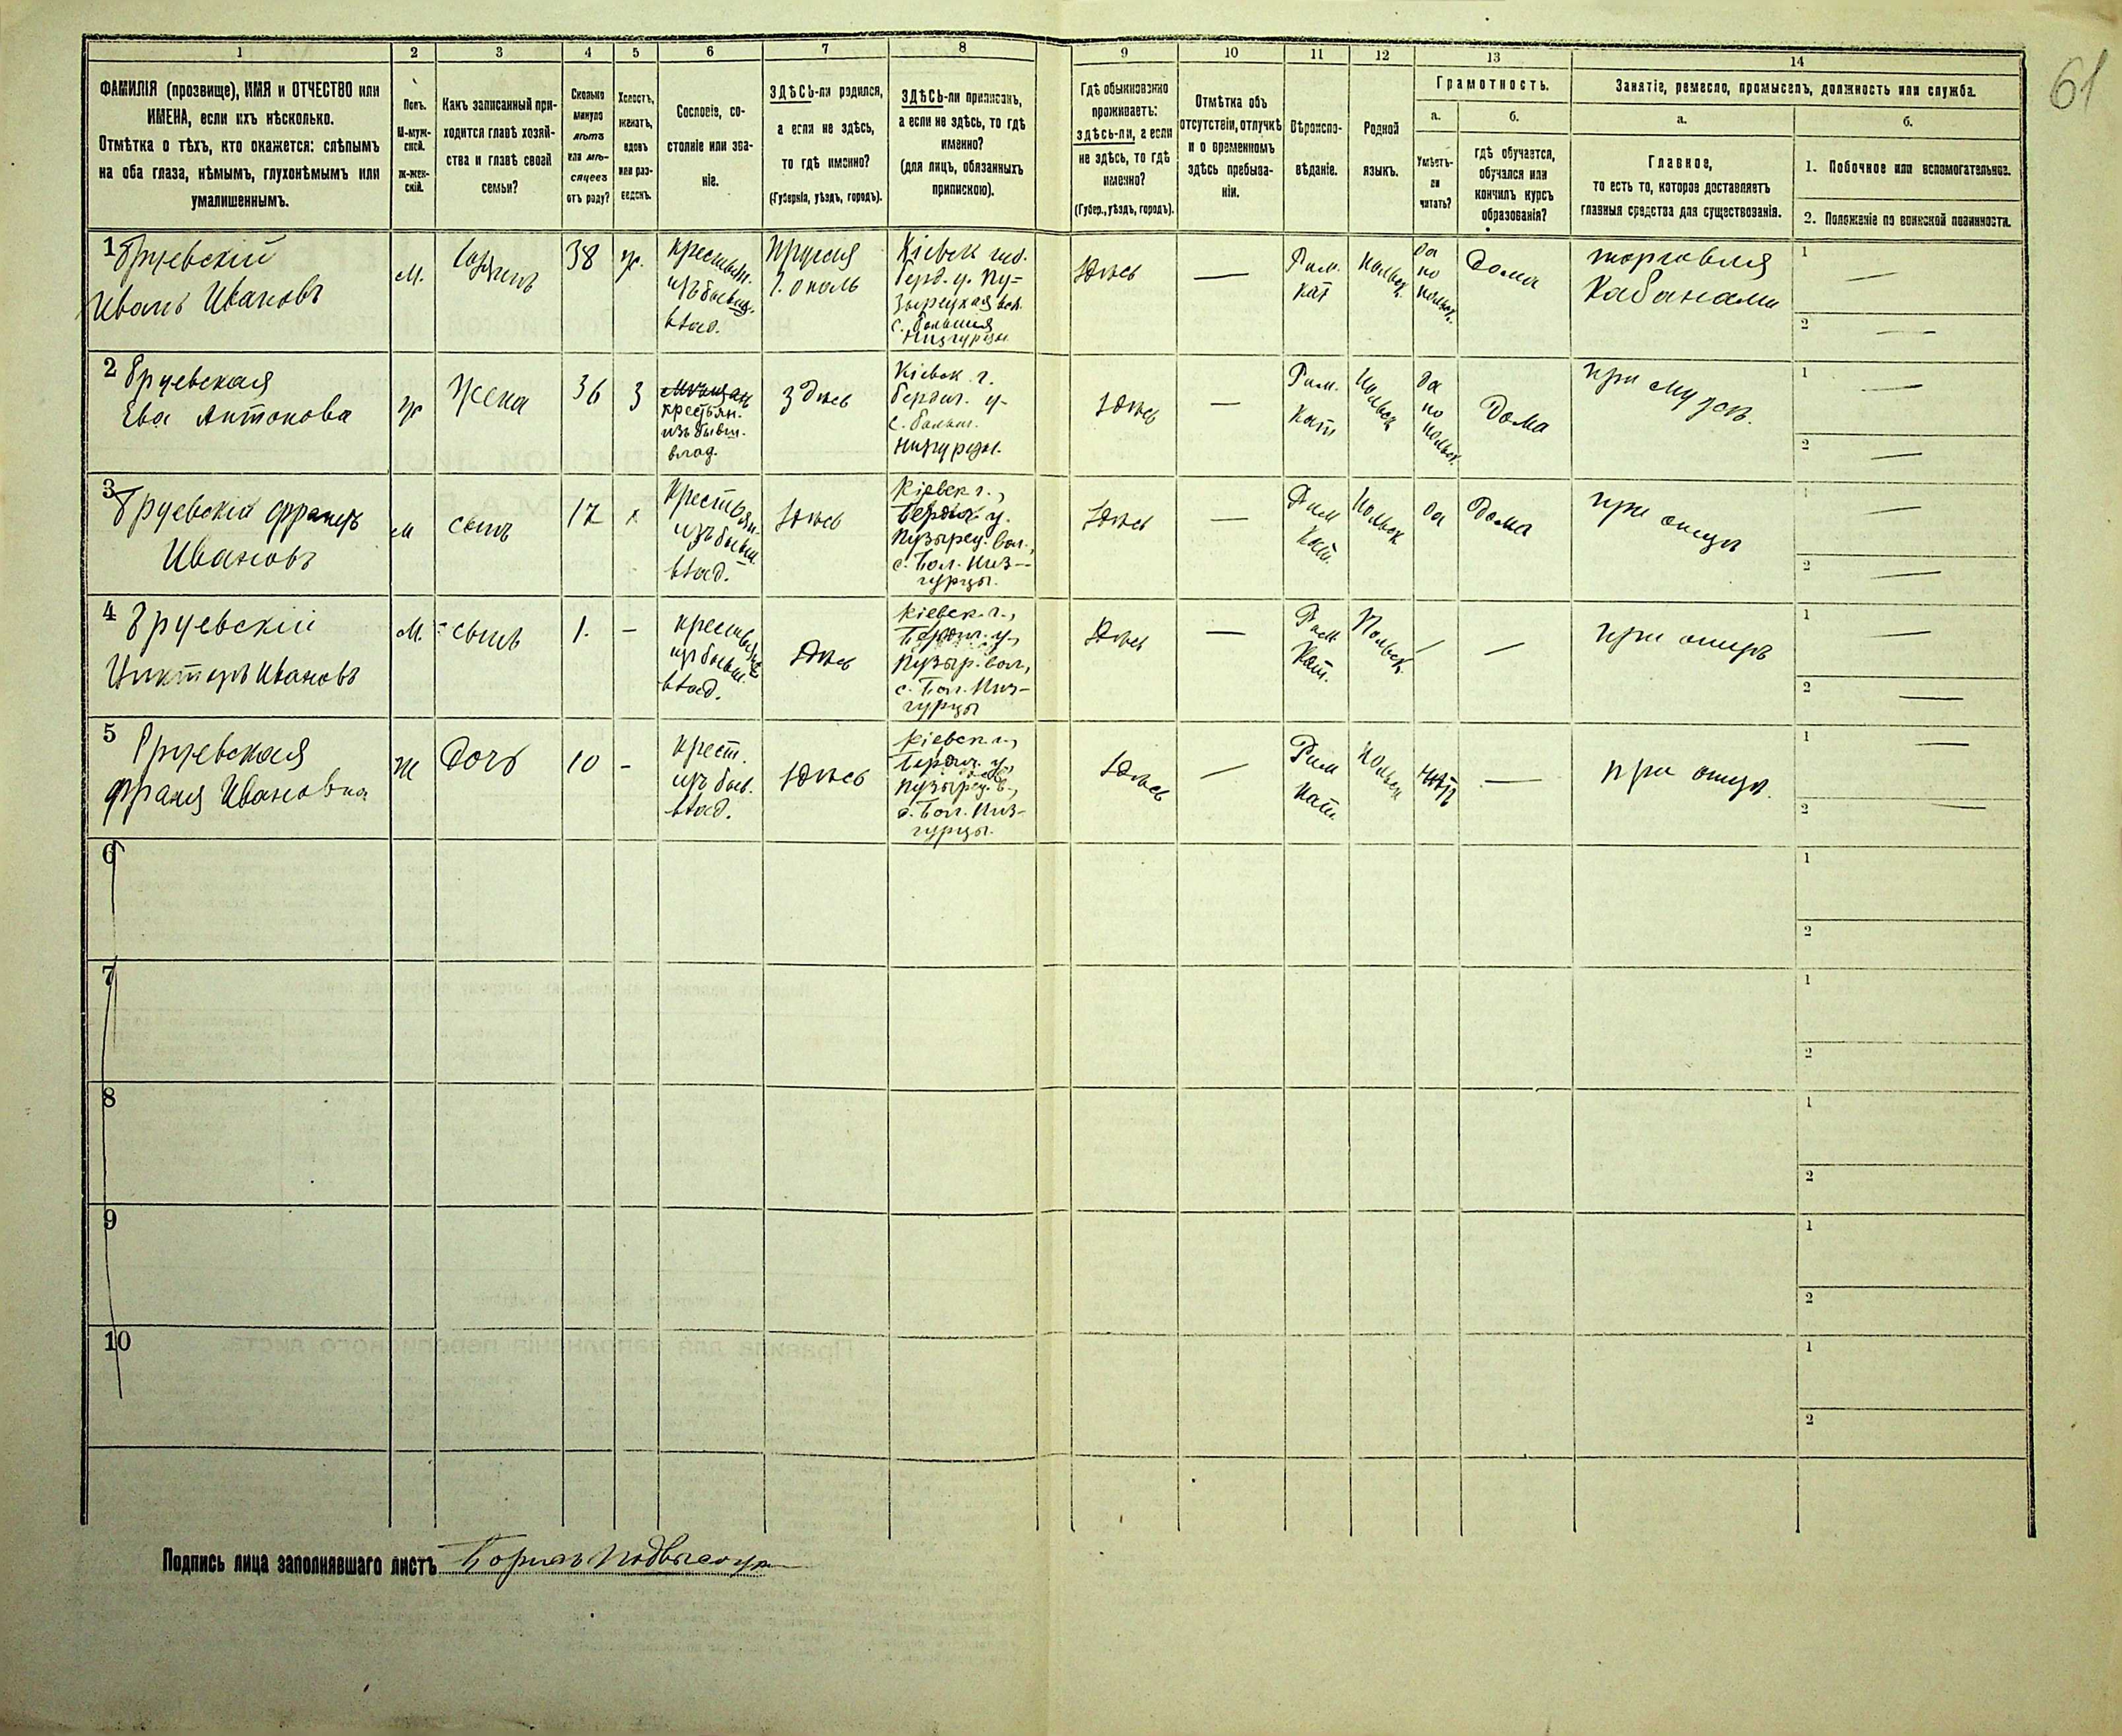 61
1 2 3 4 5 6 7 8 9 10 11 12 13 14
ФАМИЛІЯ (прозвище), ИМЯ и ОТЧЕСТВО или
ИМЕНА, если ихъ нѣсколько.
Отмѣтка о тѣхъ, кто окажется: слѣпымъ
на оба глаза, нѣмымъ, глухонѣмымъ или
умалишеннымъ.
Полъ.
М-муж-
ской.
Ж-жен-
скій.
Какъ записанный при-
ходится главѣ хозяй-
ства и главѣ своей
семьи?
Сколько
минуло
лѣтъ
или мѣ-
сяцевъ
отъ роду?
Холостъ,
женатъ,
вдовъ
или раз-
веденъ.
Сословіе, со-
стояніе или зва-
ніе.
ЗДѢСЬ-ли родился,
а если не здѣсь,
то гдѣ именно?
(Губернія, уѣздъ, городъ).
ЗДѢСЬ-ли приписанъ,
а если не здѣсь, то гдѣ
именно?
(для лицъ, обязанныхъ
припискою).
Гдѣ обыкновенно
проживаетъ:
здѣсь-ли, а если
не здѣсь, то гдѣ
именно?
(Губер., уѣздъ, городъ).
Отмѣтка объ
отсутствіи, отлучкѣ
и о временномъ
здѣсь пребыва-
ніи.
Вѣроиспо-
вѣданіе.
Родной
языкъ.
Грамотность.
а.
Умѣетъ-
ли
читать?
б.
гдѣ обучается,
обучался или
кончилъ курсъ
образованія?
Занятіе, ремесло, промыселъ, должность или служба.
а.
Главное,
то есть то, которое доставляетъ
главныя средства для существованія.
б.
1. Побочное или вспомогательное.
2. Положеніе по воинской повинности.
1
Иванъ Ивановъ
М.
38
крестьян.
изъ бывш.
влад.
Пруссія
Кіевск губ.
Берд. у. Пу-
зырецкая вол.
Здѣсь
—
Рим.
Кат
Польск.
да
по
польск.
Дома
торговля
Кабанами
1 —
2 —
2
Ева Антонова
ж
Жена
36
З
крестьян.
изъ бывш.
влад.
Здѣсь
Кіевск г.
Бердич. у-
с. больш.
Низгурцы.
Здѣсь
—
Рим.
Кат
Польск
да
по
польск.
Дома
при мужѣ.
1 —
2 —
3
Францъ
Ивановъ
м
сынъ
12
х
Крестьян.
изъ бывш.
влад.
Здѣсь
Кіевск г.,
Бердич у.
Пузырец. вол.,
с. Бол. Низ-
гурцы.
Здѣсь
—
Рим
Кат.
Польск
да
Дома
при отцѣ
1 —
2 —
4
Ивановъ
М.
сынъ
1.
–
крестьян
изъ бывш.
влад.
Здѣсь
Кіевск. г.,
Бердич. у.,
Пузыр. вол.,
с. Бол. Низ-
гурцы
Здѣсь
—
Рим
Кат.
Польск.
—
—
при отцѣ
1 —
2 —
5
Франя Ивановна
Ж
Дочь
10
–
крест.
изъ быв.
влад.
Здѣсь
Кіевск. г.,
Бердич. у.,
Пузырец. в.,
с. Бол. Низ-
гурцы.
Здѣсь
—
Рим
Кат.
Польск
нѣтъ
—
при отцѣ.
1 —
2 —
6
1
2
7
1
2
8
1
2
9
1
2
10
1
2
Подпись лица заполнявшаго листъ